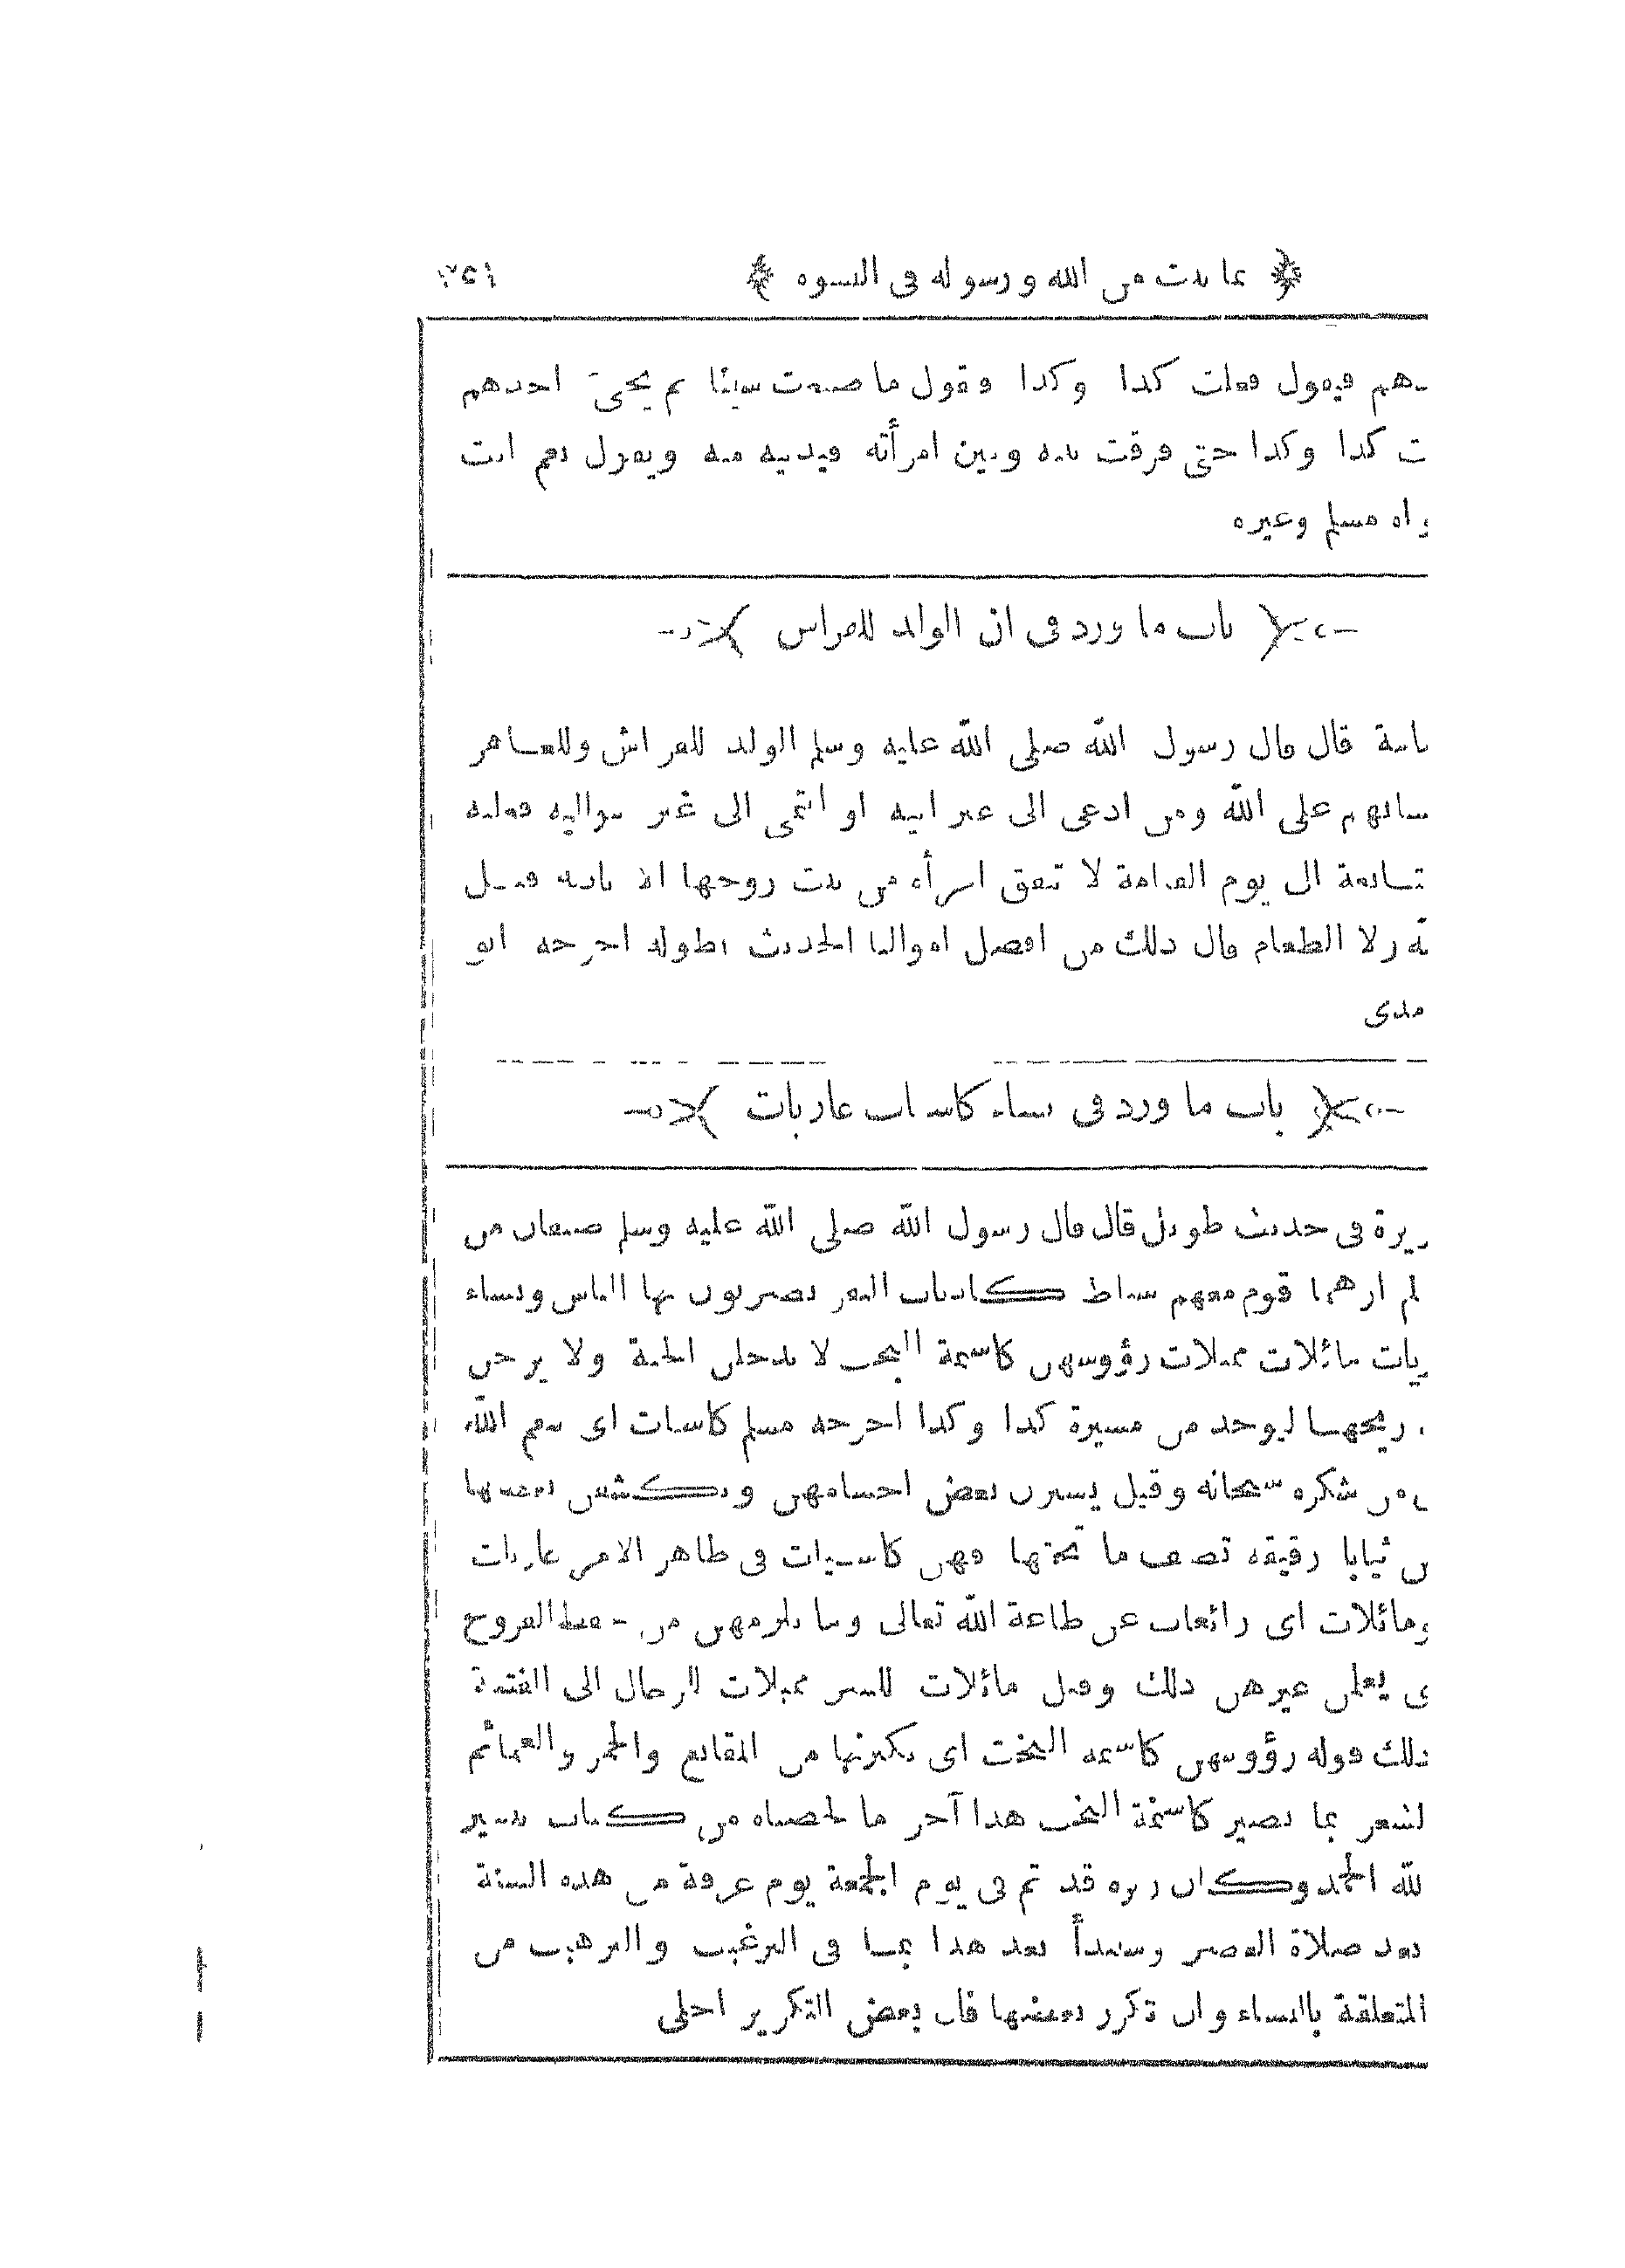 ﴿ بما ثبت من الله ورسوله فى النسوه ﴾
ـدهم فيقول فعلت كذا وكذا فيقول ما صنعت شيئا ثم يجئ احدهم
ت كذا وكذا حتى فرقت بينه وبين امرأته فيدنيه منه ويقول نعم انت
واه مسلم وغيره
﴿ باب ما ورد فى ان الولد للفراش ﴾
مامة قال قال رسول الله صلى الله عليه وسلم الولد للفراش وللعاهر
سابهم على الله ومن ادعى الى غير ابيه او انتمى الى غير مواليه فعليه
تتابعة الى يوم القيامة لا تنفق امرأة من بيت زوجها الا باذنه قيل
ولا الطعام قال ذلك من افضل اموالنا الحديث بطوله اخرجه ابو
مذى
﴿ باب ما ورد فى نساء كاسيات عاريات ﴾
ريرة فى حديث طويل قال قال رسول الله صلى الله عليه وسلم صنفان من
لم ارهما قوم معهم سياط كاذناب البقر يضربون بها الناس ونساء
ريات مائلات مميلات رؤوسهن كاسنمة البخت لا يدخلن الجنة ولا يرحن
ريحها ليوجد من مسيرة كذا وكذا اخرجه مسلم كاسيات اى بنعم الله
من شكره سبحانه وقيل يسترن بعض اجسامهن ويكشفن بعضها
ن ثيابا رقيقة تصف ما تحتها فهن كاسيات فى ظاهر الامر عاريات
ومائلات اى زائغات عن طاعة الله تعالى وما يلزمهن من حفظ الفروج
ى يعلمن غيرهن ذلك وقيل مائلات للشر مميلات للرجال الى الفتنة
ذلك قوله رؤوسهن كاسنمة البخت اى يكبرنها من المقانع والخمر والعمائم
لشعر بما تصير كاسنمة البخت هذا آخر ما لخصناه من كتاب تيسير
لله الحمد وكان زبره قد تم فى يوم الجمعة يوم عرفة من هذه السنة
بعد صلاة العصر وسنبدأ بعد هذا بما فى الترغيب والترهيب من
المتعلقة بالنساء وان تكرر بعضها فان بعض التكرير احلى